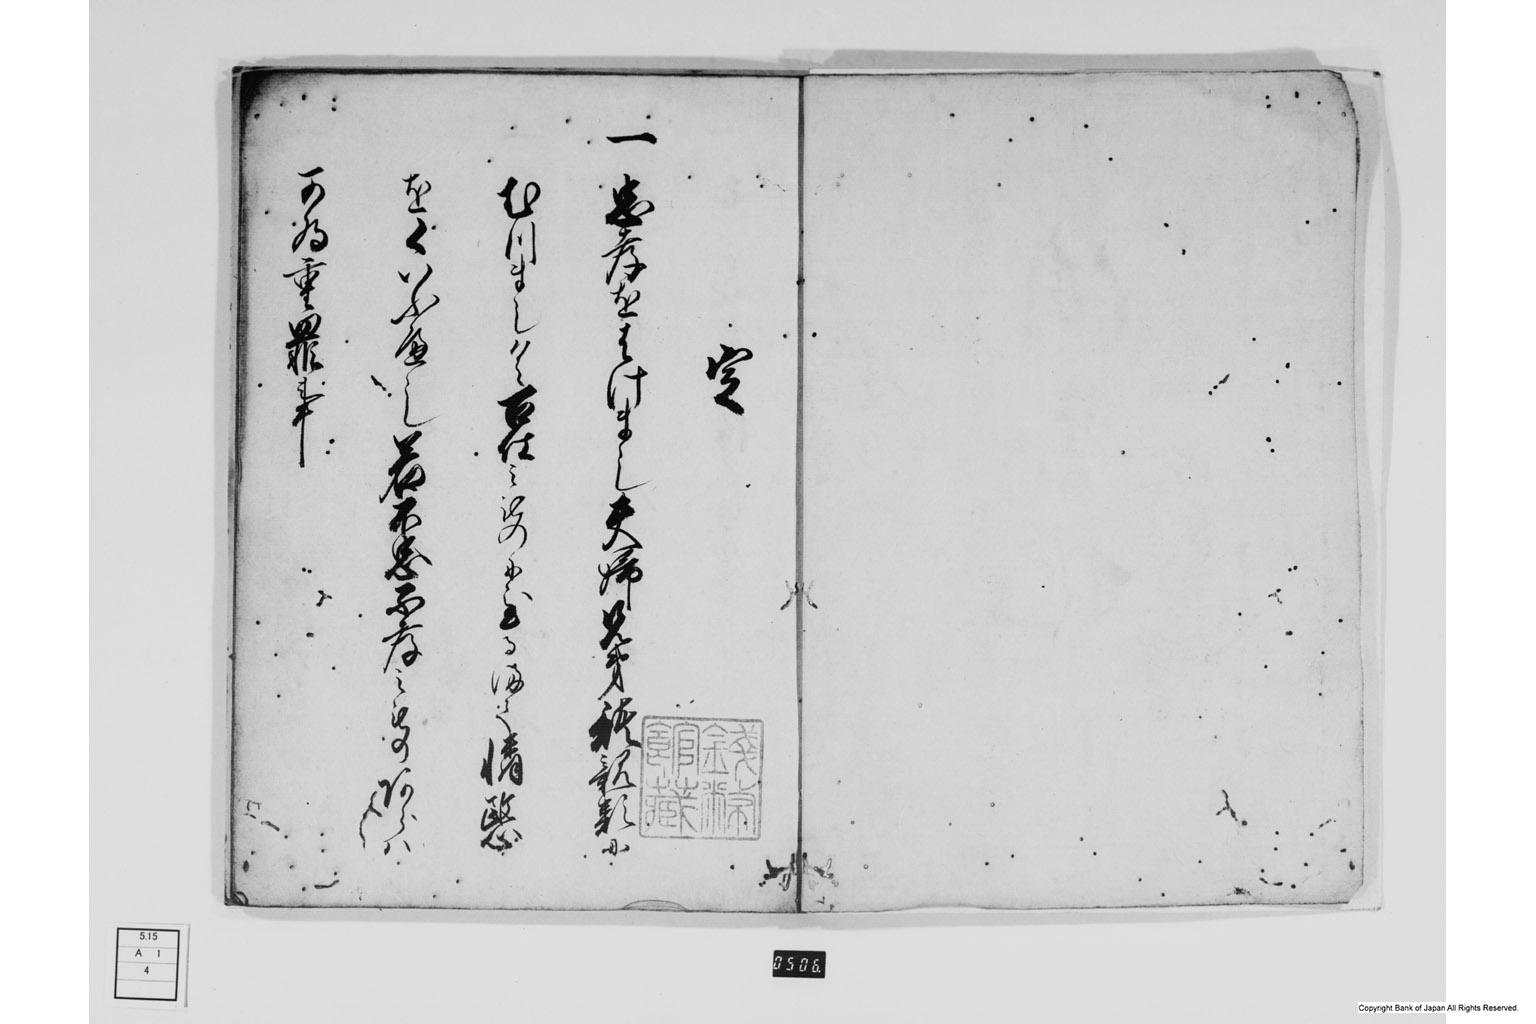 定
一 忠孝をはけまし夫婦兄弟諸親類に
むつましく召仕之者に至るまて憐愍
をくハふへし若不忠不孝之者あらハ
可為重罪事
錢幣館藏
5.15
A 1
4
0506.
Copyright Bank of Japan All Rights Reserved.